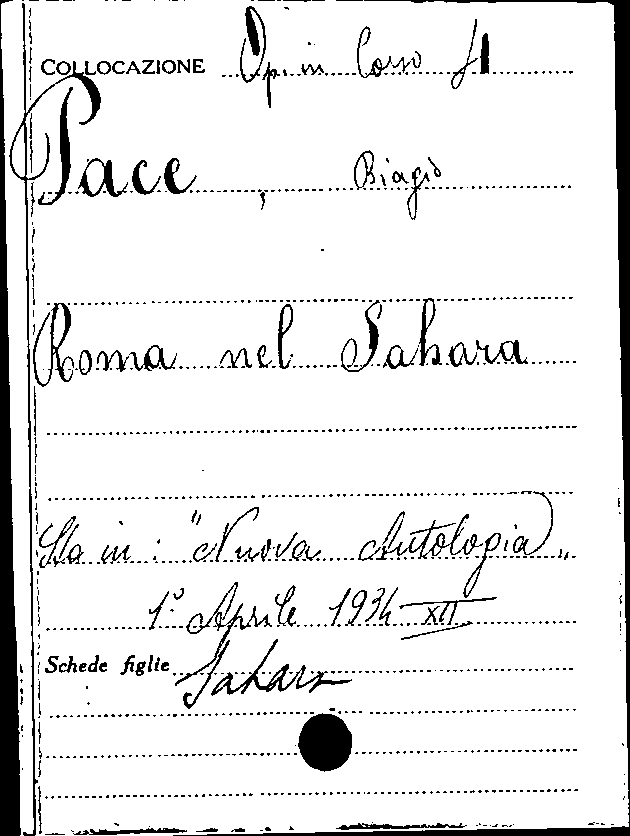 COLLOCAZIONE Op. in Corso
Pace, Biagio
Roma nel Sahara
Sta in: "Nuova Antologia„
1° Aprile 1934 XII
Schede figlie Sahara